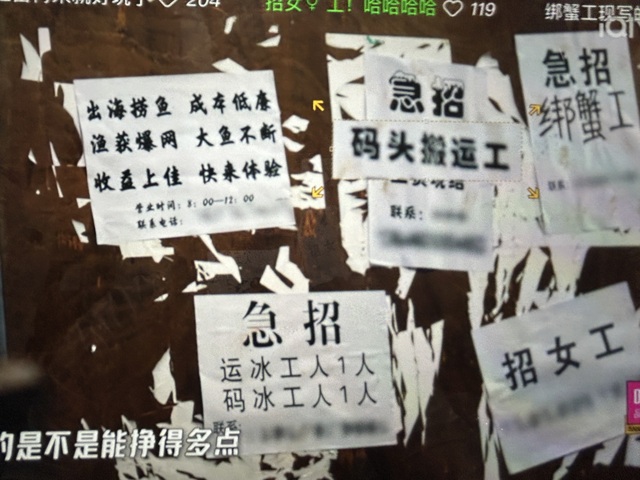 204
招女♀工！哈哈哈哈 ♡ 119
绑蟹工现写的
出海捞鱼 成本低廉
渔获爆网 大鱼不断
收益上佳 快来体验
营业时间：8：00—12：00
联系电话：
急招
码头搬运工
联系：
急招
绑蟹工
急招
运冰工人1人
码冰工人1人
联系：
招女工
的是不是能挣得多点